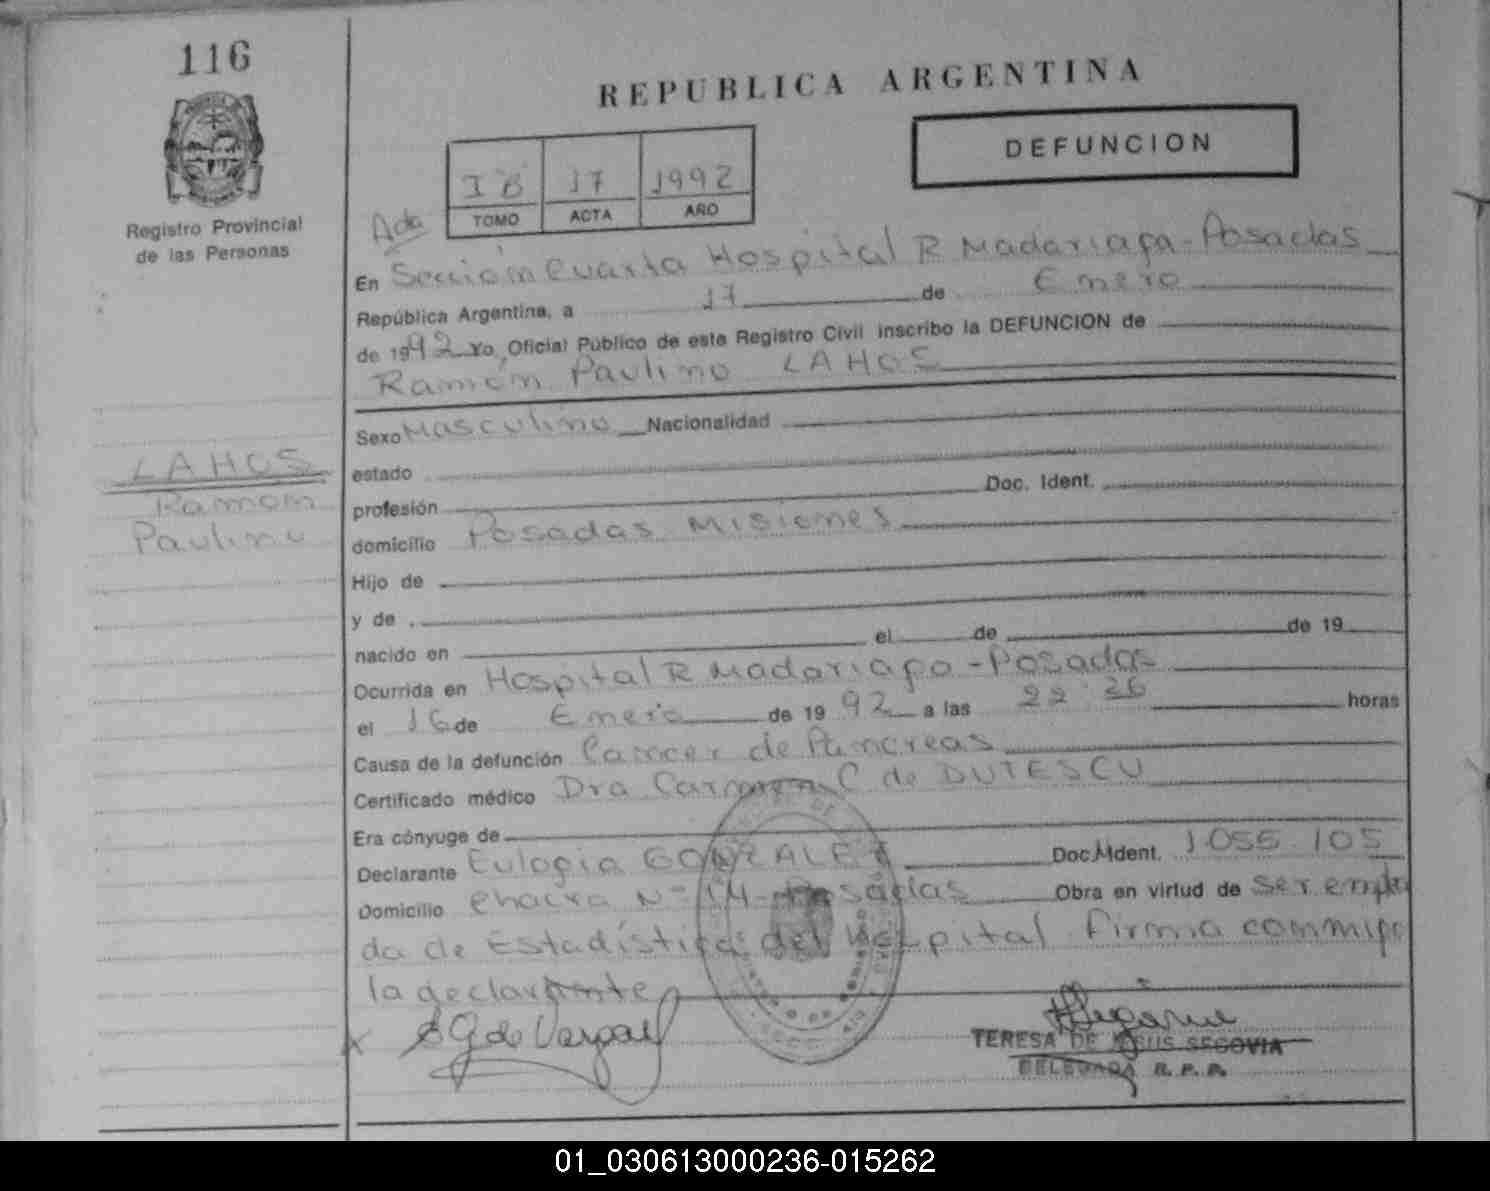 116
REPUBLICA ARGENTINA
DEFUNCION
I B 17 1992
TOMO ACTA AÑO
Registro Provincial
de las Personas
Acta
En Sección Cuarta Hospital R Madariaga - Posadas
República Argentina, a 17 de Enero
de 1992 Yo, Oficial Público de este Registro Civil inscribo la DEFUNCION de
Ramón Paulino LAHOS
Sexo Masculino Nacionalidad
LAHOS
Ramón
Paulino
estado
profesión Doc. Ident.
domicilio Posadas Misiones
Hijo de
y de
nacido en el de de 19
Ocurrida en Hospital R Madariaga - Posadas
el 16 de Enero de 1992 a las 22 26 horas
Causa de la defunción Cancer de Páncreas
Certificado médico Dra Carmen C de DUTESCU
Era cónyuge de
Declarante Eulogia GONZALEZ Doc. Ident. 1.055.105
Domicilio Chacra Nº 14 - Posadas Obra en virtud de ser emplea
da de Estadística del Hospital Firma conmigo
la declarante
TERESA DE JESUS SEGOVIA
DELEGADA R. P. P.
01_030613000236-015262